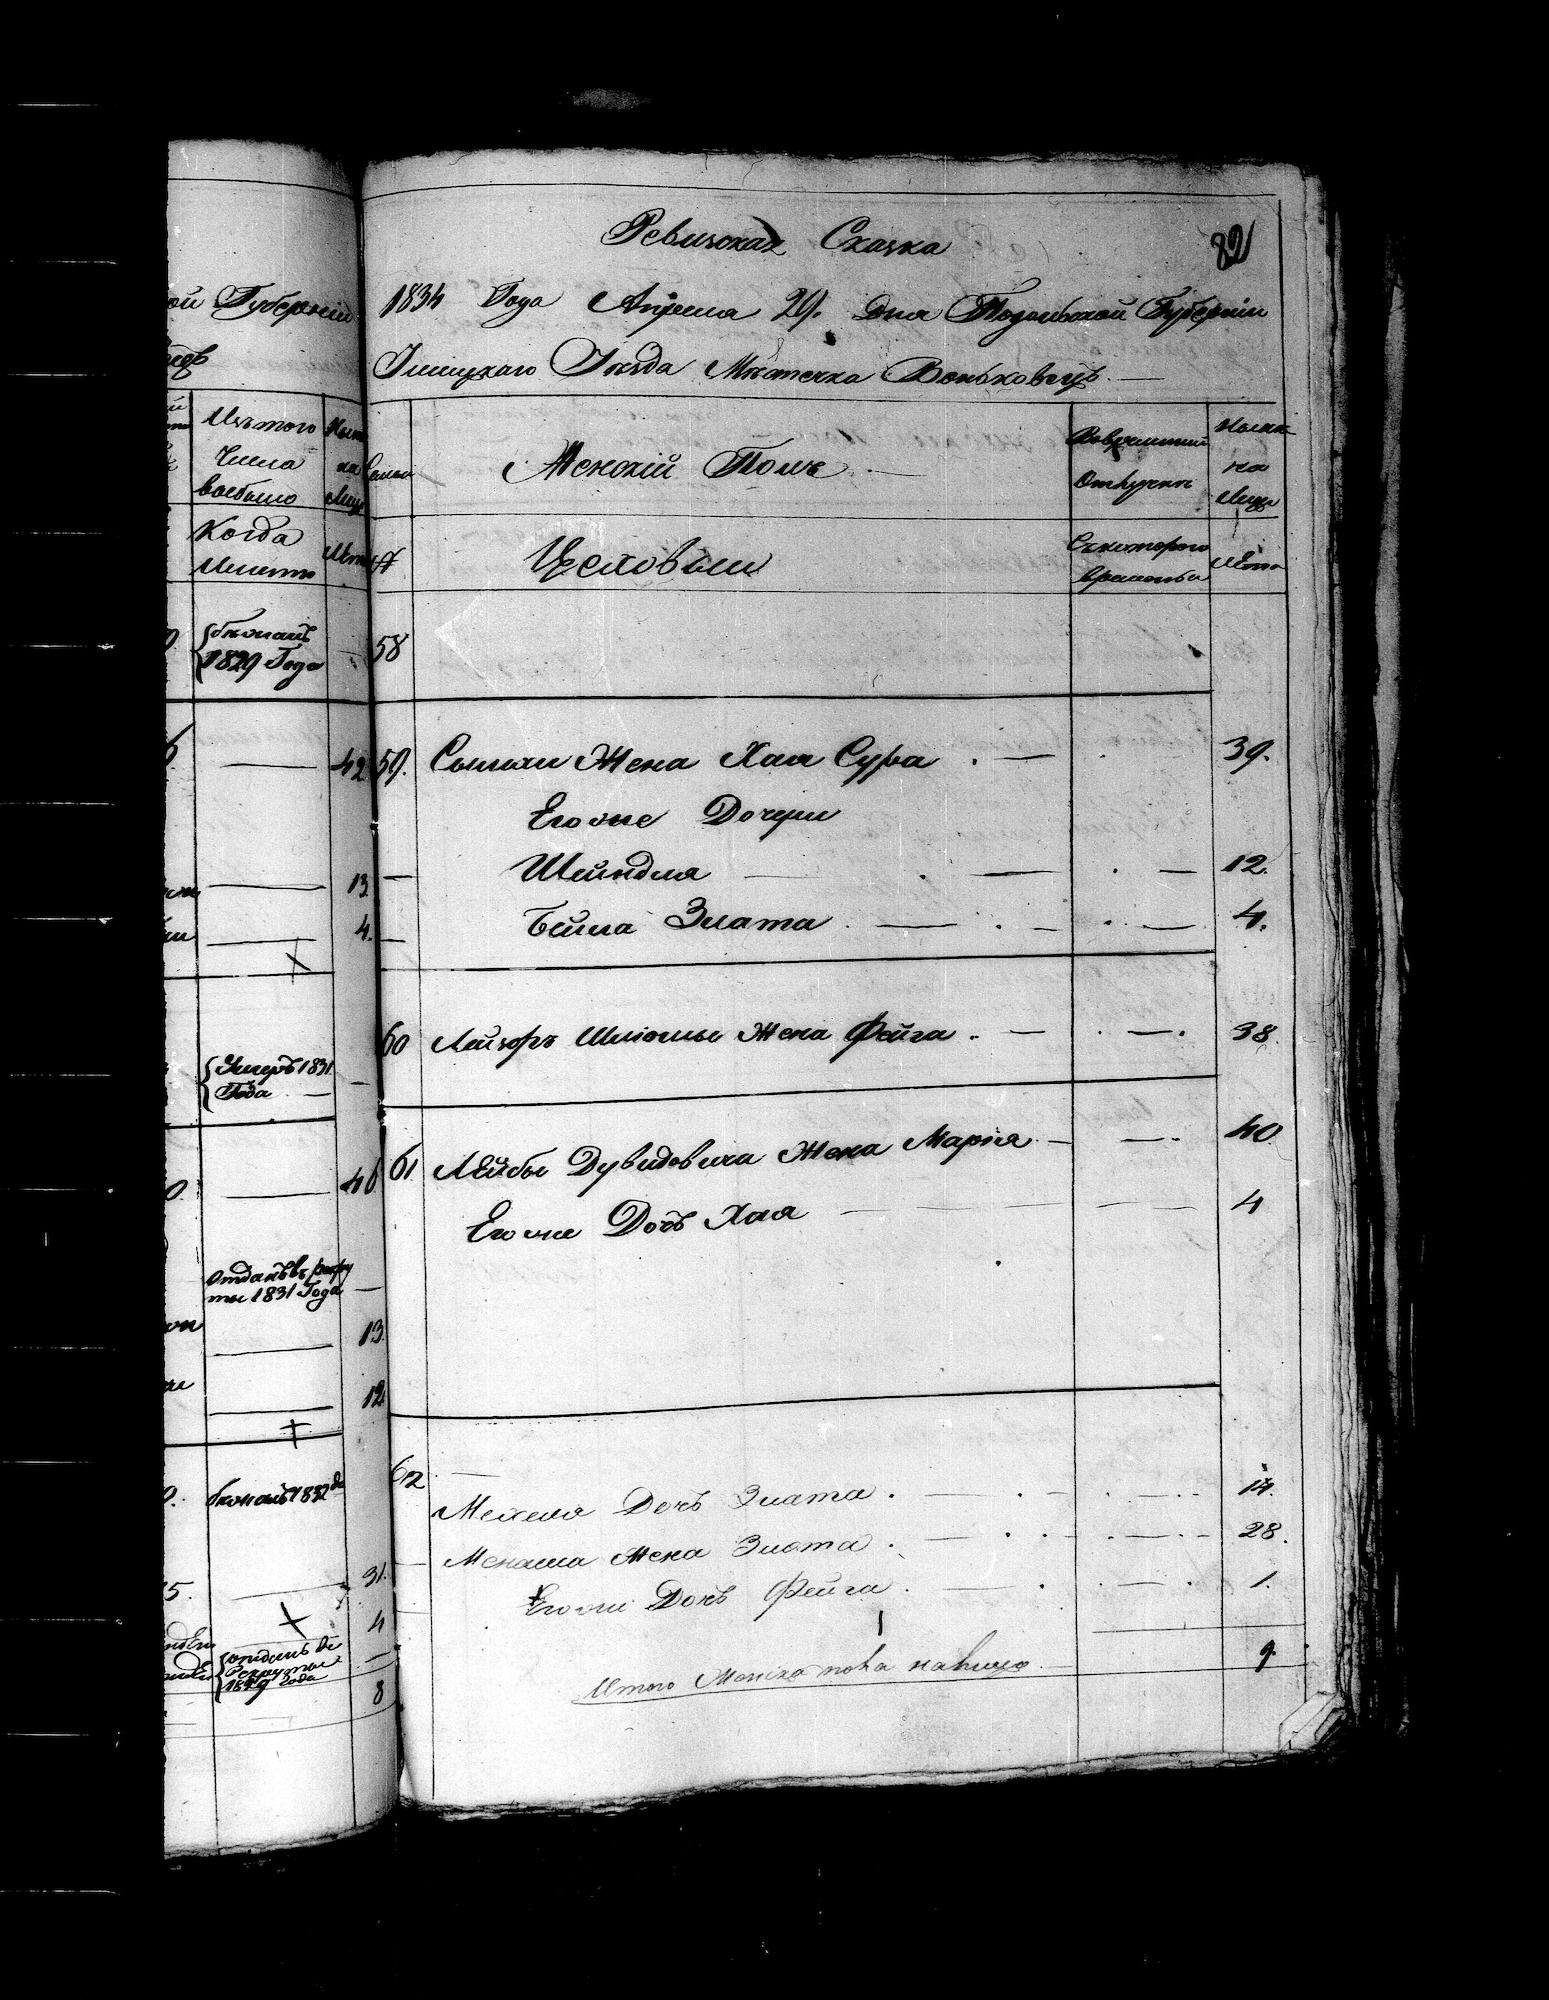 ой Губерніи
Изъ того
Числа
выбыло
Когда
Именно
Лета
бежалъ
1829 Года
42
13
4.
Умеръ 1831
Года
46
Отданъ въ рекру
ты 1831 Года
13
12
бежалъ 1832
31.
4
отданъ въ
Рекруты
1829 Года
8
82
Ревизская Сказка
1834 Года Апреля 29. Дня Подольской Губерніи
Ушицкаго Уѣзда Мѣстечка Веньковецъ
Семьи
Женскій Полъ
Во временной
Отлучке
Ныне
на
Лицо
№
Цеховыи
Съ котораго
времени
Лета
58
59. Сымхи Жена Хая Сура 39.
Его же Дочери
Шейндля 12.
Бейла Злата 4.
60 Лейзоръ Шлюмы Жена Фейга 38
61 Лейбы Дувидовича Жена Марія 40
Его же Дочь Хая 4
62
Мехеля Дочь Злата 14.
Менаша Жена Злота 28.
Его же Дочь Фейга 1.
Итого Женска пола налицо 9